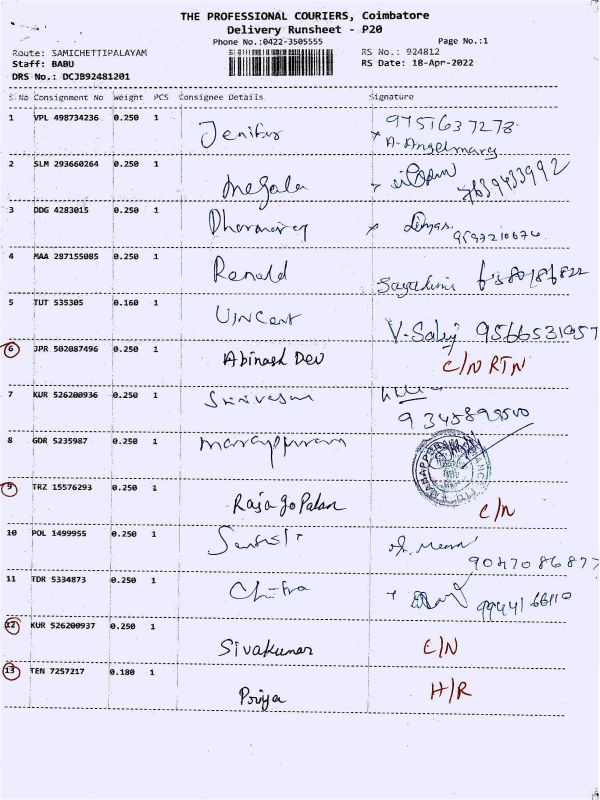 THE PROFESSIONAL COURIERS, Coimbatore
Delivery Runsheet - P20
Phone No.:0422-3505555 Page No.:1
Route: SAMICHETTIPALAYAM RS No.: 924812
Staff: BABU RS Date: 18-Apr-2022
DRS No.: DCJB92481201
S No Consignment No Weight PCS Consignee Details Signature
1 VPL 498734236 0.250 1 Jenifer 9751637278
A. Angelmary
2 SLM 293660264 0.250 1 Megala 7639433992
3 DDG 4283015 0.250 1 Dharmaraj
4 MAA 287155085 0.250 1 Ronald
5 TUT 535305 0.160 1 Vincent 9566531957
6 JPR 502087496 0.250 1 Abinash Dev C/N RTN
7 KUR 526200936 0.250 1 Srinivasan
8 GDR 5235987 0.250 1
9 TRZ 15576293 0.250 1 Rajagopalan C/N
10 POL 1499955 0.250 1
11 TDR 5334873 0.250 1 Chitra 9944166110
12 KUR 526200937 0.250 1 Sivakumar C/N
13 TEN 7257217 0.180 1 Priya H/R